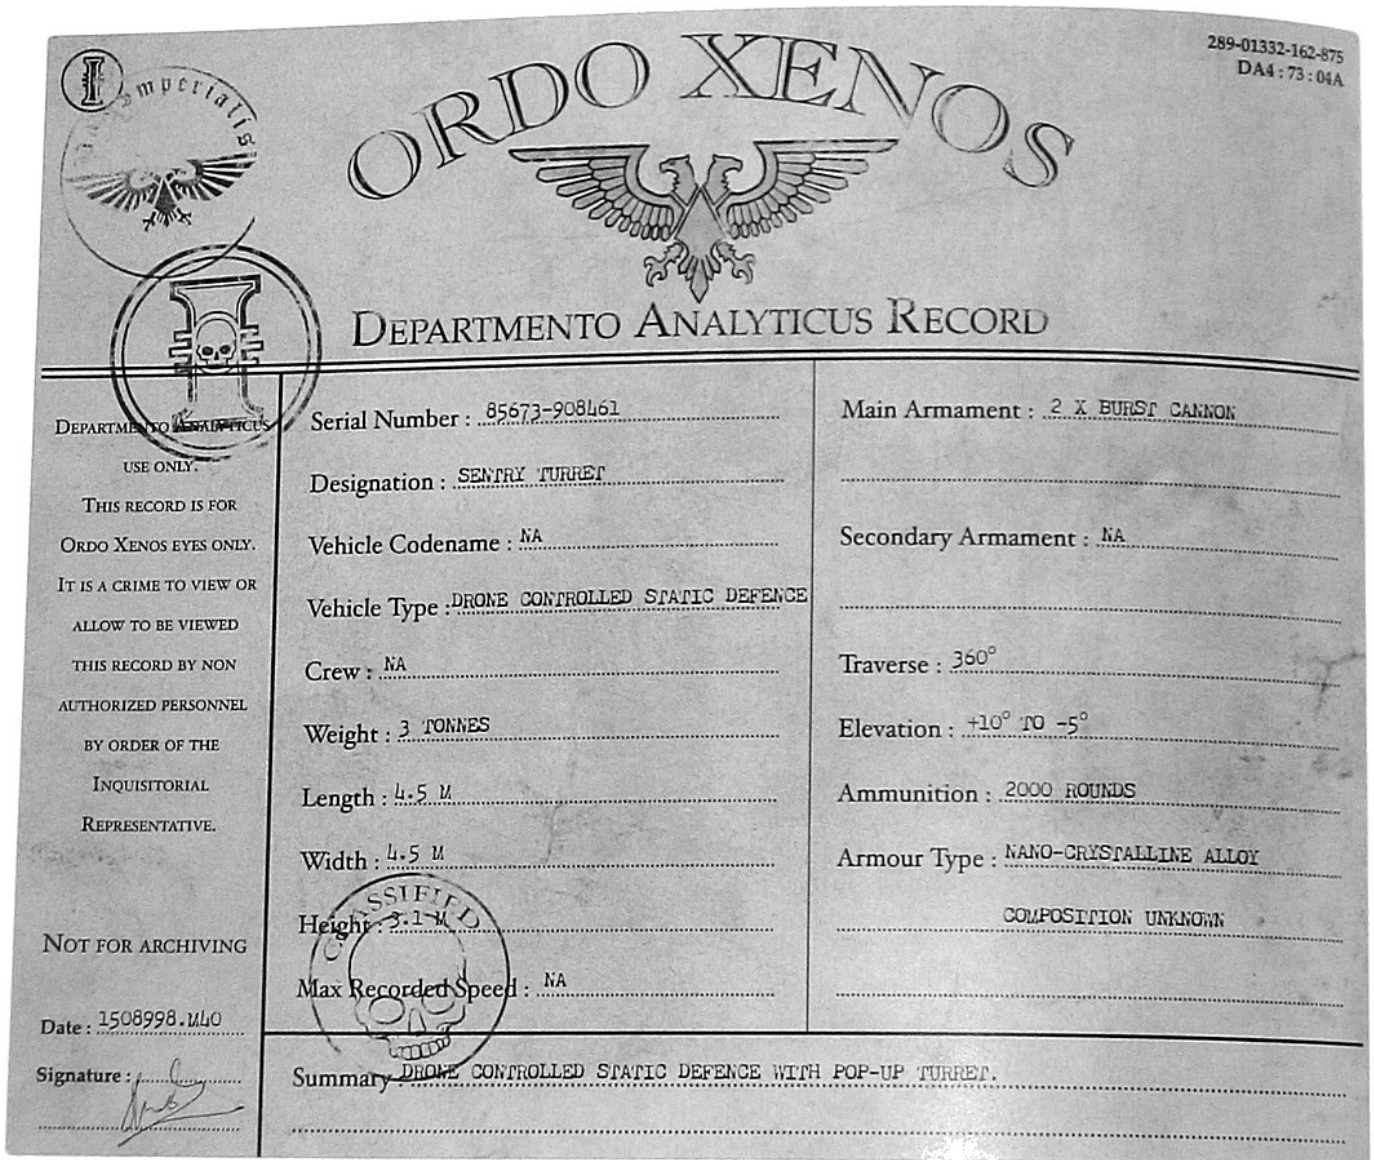 289-01332-162-875
DA4 : 73 : 04A
Imperialis
ORDO XENOS
DEPARTMENTO ANALYTICUS RECORD
DEPARTMENTO ANALYTICUS
USE ONLY.
THIS RECORD IS FOR
ORDO XENOS EYES ONLY.
IT IS A CRIME TO VIEW OR
ALLOW TO BE VIEWED
THIS RECORD BY NON
AUTHORIZED PERSONNEL
BY ORDER OF THE
INQUISITORIAL
REPRESENTATIVE.
NOT FOR ARCHIVING
Date : 1508998.M40
Signature :
Serial Number : 85673-908461
Designation : SENTRY TURRET
Vehicle Codename : NA
Vehicle Type : DRONE CONTROLLED STATIC DEFENCE
Crew : NA
Weight : 3 TONNES
Length : 4.5 M
Width : 4.5 M
Height : 3.1 M
Max Recorded Speed : NA
CLASSIFIED
Main Armament : 2 X BURST CANNON
Secondary Armament : NA
Traverse : 360°
Elevation : +10° TO -5°
Ammunition : 2000 ROUNDS
Armour Type : NANO-CRYSTALLINE ALLOY
COMPOSITION UNKNOWN
Summary DRONE CONTROLLED STATIC DEFENCE WITH POP-UP TURRET.